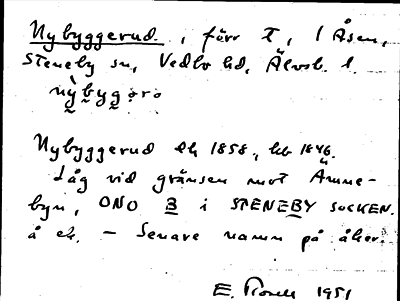 Nybyggerud, förr t, 1 Åsen,
Steneby sn, Vedbo hd, Älvsb. l.
nỳbygərə
Nybyggerud ek 1858, hb 1846.
Låg vid gränsen mot Ånne-
byn, ONO B i STENEBY SOCKEN.
å ek. – Senare namn på åker.
E. 1951